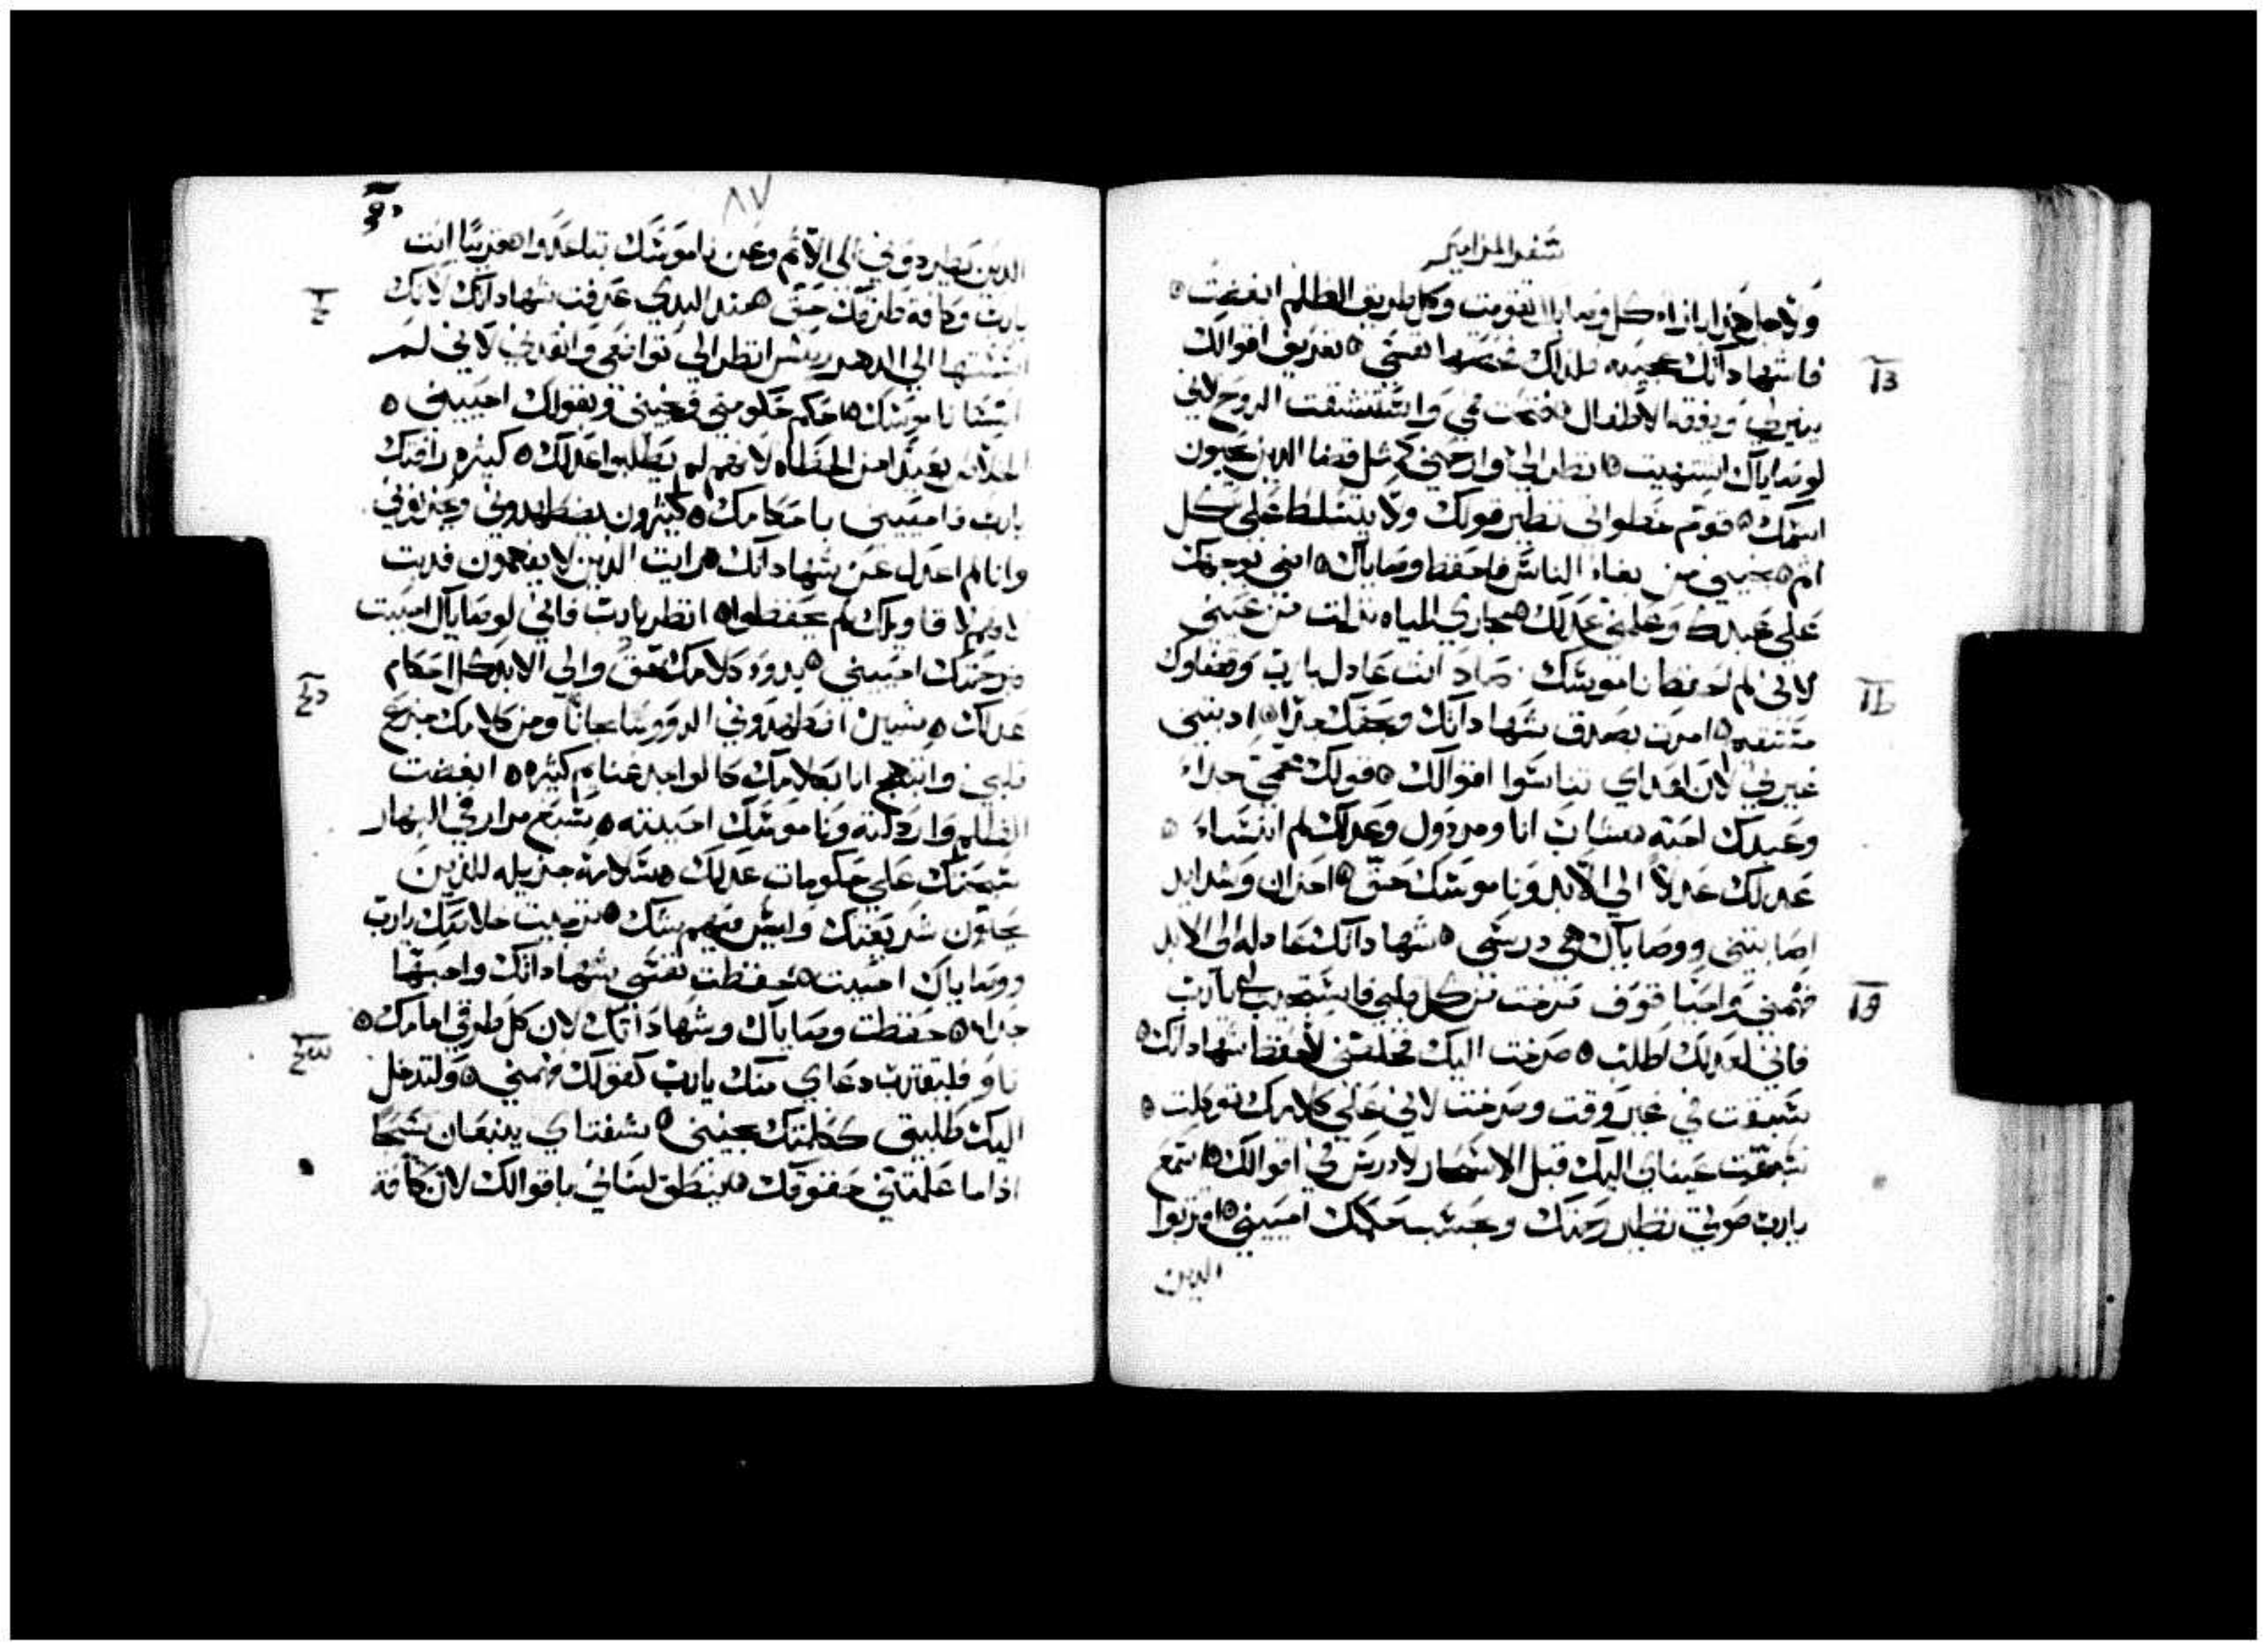 سفر المزامير
ولاجل هذا ازاء كل وصاياك تقومت وكل طريق الظلم ابغضت ه
فا شهاداتك عجيبه فلذلك نفسي ه تعريف اقوالك
13
ينير لي ويفقه الاطفال ه فتحت فمي واستنشقت الروح لاني
لوصاياك اشتهيت ه انظر الي وارحمني كمثل قضا الدين يحبون
اسمك ه قوم خطواتي نظير قولك ولا يتسلط علي كل
اثم ه نجيني من بغاء الناس فاحفظ وصاياك ه اضي بوجهك
علي عبدك وعلمني عدلك ه مجاري المياه نزلت من عيني
لاني لم احفظ ناموسك صاد انت عادل يارب وقضاوك
مستقيمه ه امرت بصدق شهاداتك وبحقك جدا ه اذبتني
غيرتي لان اعداي تناسوا اقوالك ه قولك محمي جداء
وعبدك احبه شاب انا ومردول وعدلك لم انساء ه
عدلك عدلا الي الابد وناموسك حق ه احزان وشدايد
اصابتني ووصاياك هي درسي ه شهاداتك عادله الي الابد
فهمني واحيا قوف صرخت من كل قلبي فاستجيب لي يارب
19
فاني لعدلك اطلب ه صرخت اليك فخلصني لاحفظ شهاداتك ه
سبقت في غير وقت وصرخت لاني علي كلامك توكلت ه
سبقت عيناي اليك قبل الاسحار لادرس في اقوالك ه اسمع
يارب صوتي نظير رحمتك وبحسب حكمك احييني ه اقتربوا
الدين
٨٧
الدين يطردوني الي الاثم وعن ناموسك تباعدوا ه قريبا انت
يارب وكافة طرقك حق ه منذ البدي عرفت شهاداتك لانك
اسستها الي الدهر ريش انظر الي تواضعي وانقدني لاني لم
انسا ناموسك ه احكم حكومتي ونجيني وبقولك احييني ه
الخلاص بعيدا من الخطاه لانهم لم يطلبوا عدلك ه كثيره رافتك
يارب فاحييني باحكامك ه كثيرون يضطهدوني ويحزنوني
وانا لم اعدل عن شهاداتك ه رايت الدين لا يفهمون فدبت
لانهم لاقاويلك لم يحفظوا ه انظر يارب فاني لوصاياك احببت
برحمتك احييني ه بدوء كلامك حق والي الابد كل احكام
عدلك ه شين اضطهدوني الرووسا مجانا ومن كلامك جزع
قلبي وابتهج انا بكلامك كالواجد غنايم كثيره ه ابغضت
الظلم واردلته وناموسك احببته ه سبع مرار في النهار
سبحتك علي حكومات عدلك ه سلامة جزيله للذين
يحبون شريعتك وليس فيهم شك ه ترجيت خلاصك يارب
ووصاياك احببت ه حفظت نفسي شهاداتك واحبتها
جدا ه حفظت وصاياك وشهاداتك لان كل طرقي امامك ه
تاو فليقترب دعاي منك يارب كقولك فهمني ه ولتدخل
اليك طلبتي ككلمتك نجيني ه شفتاي ينبعان تسبحا
اذا ما علمتني حقوقك فلينطق لساني باقوالك لان كافة